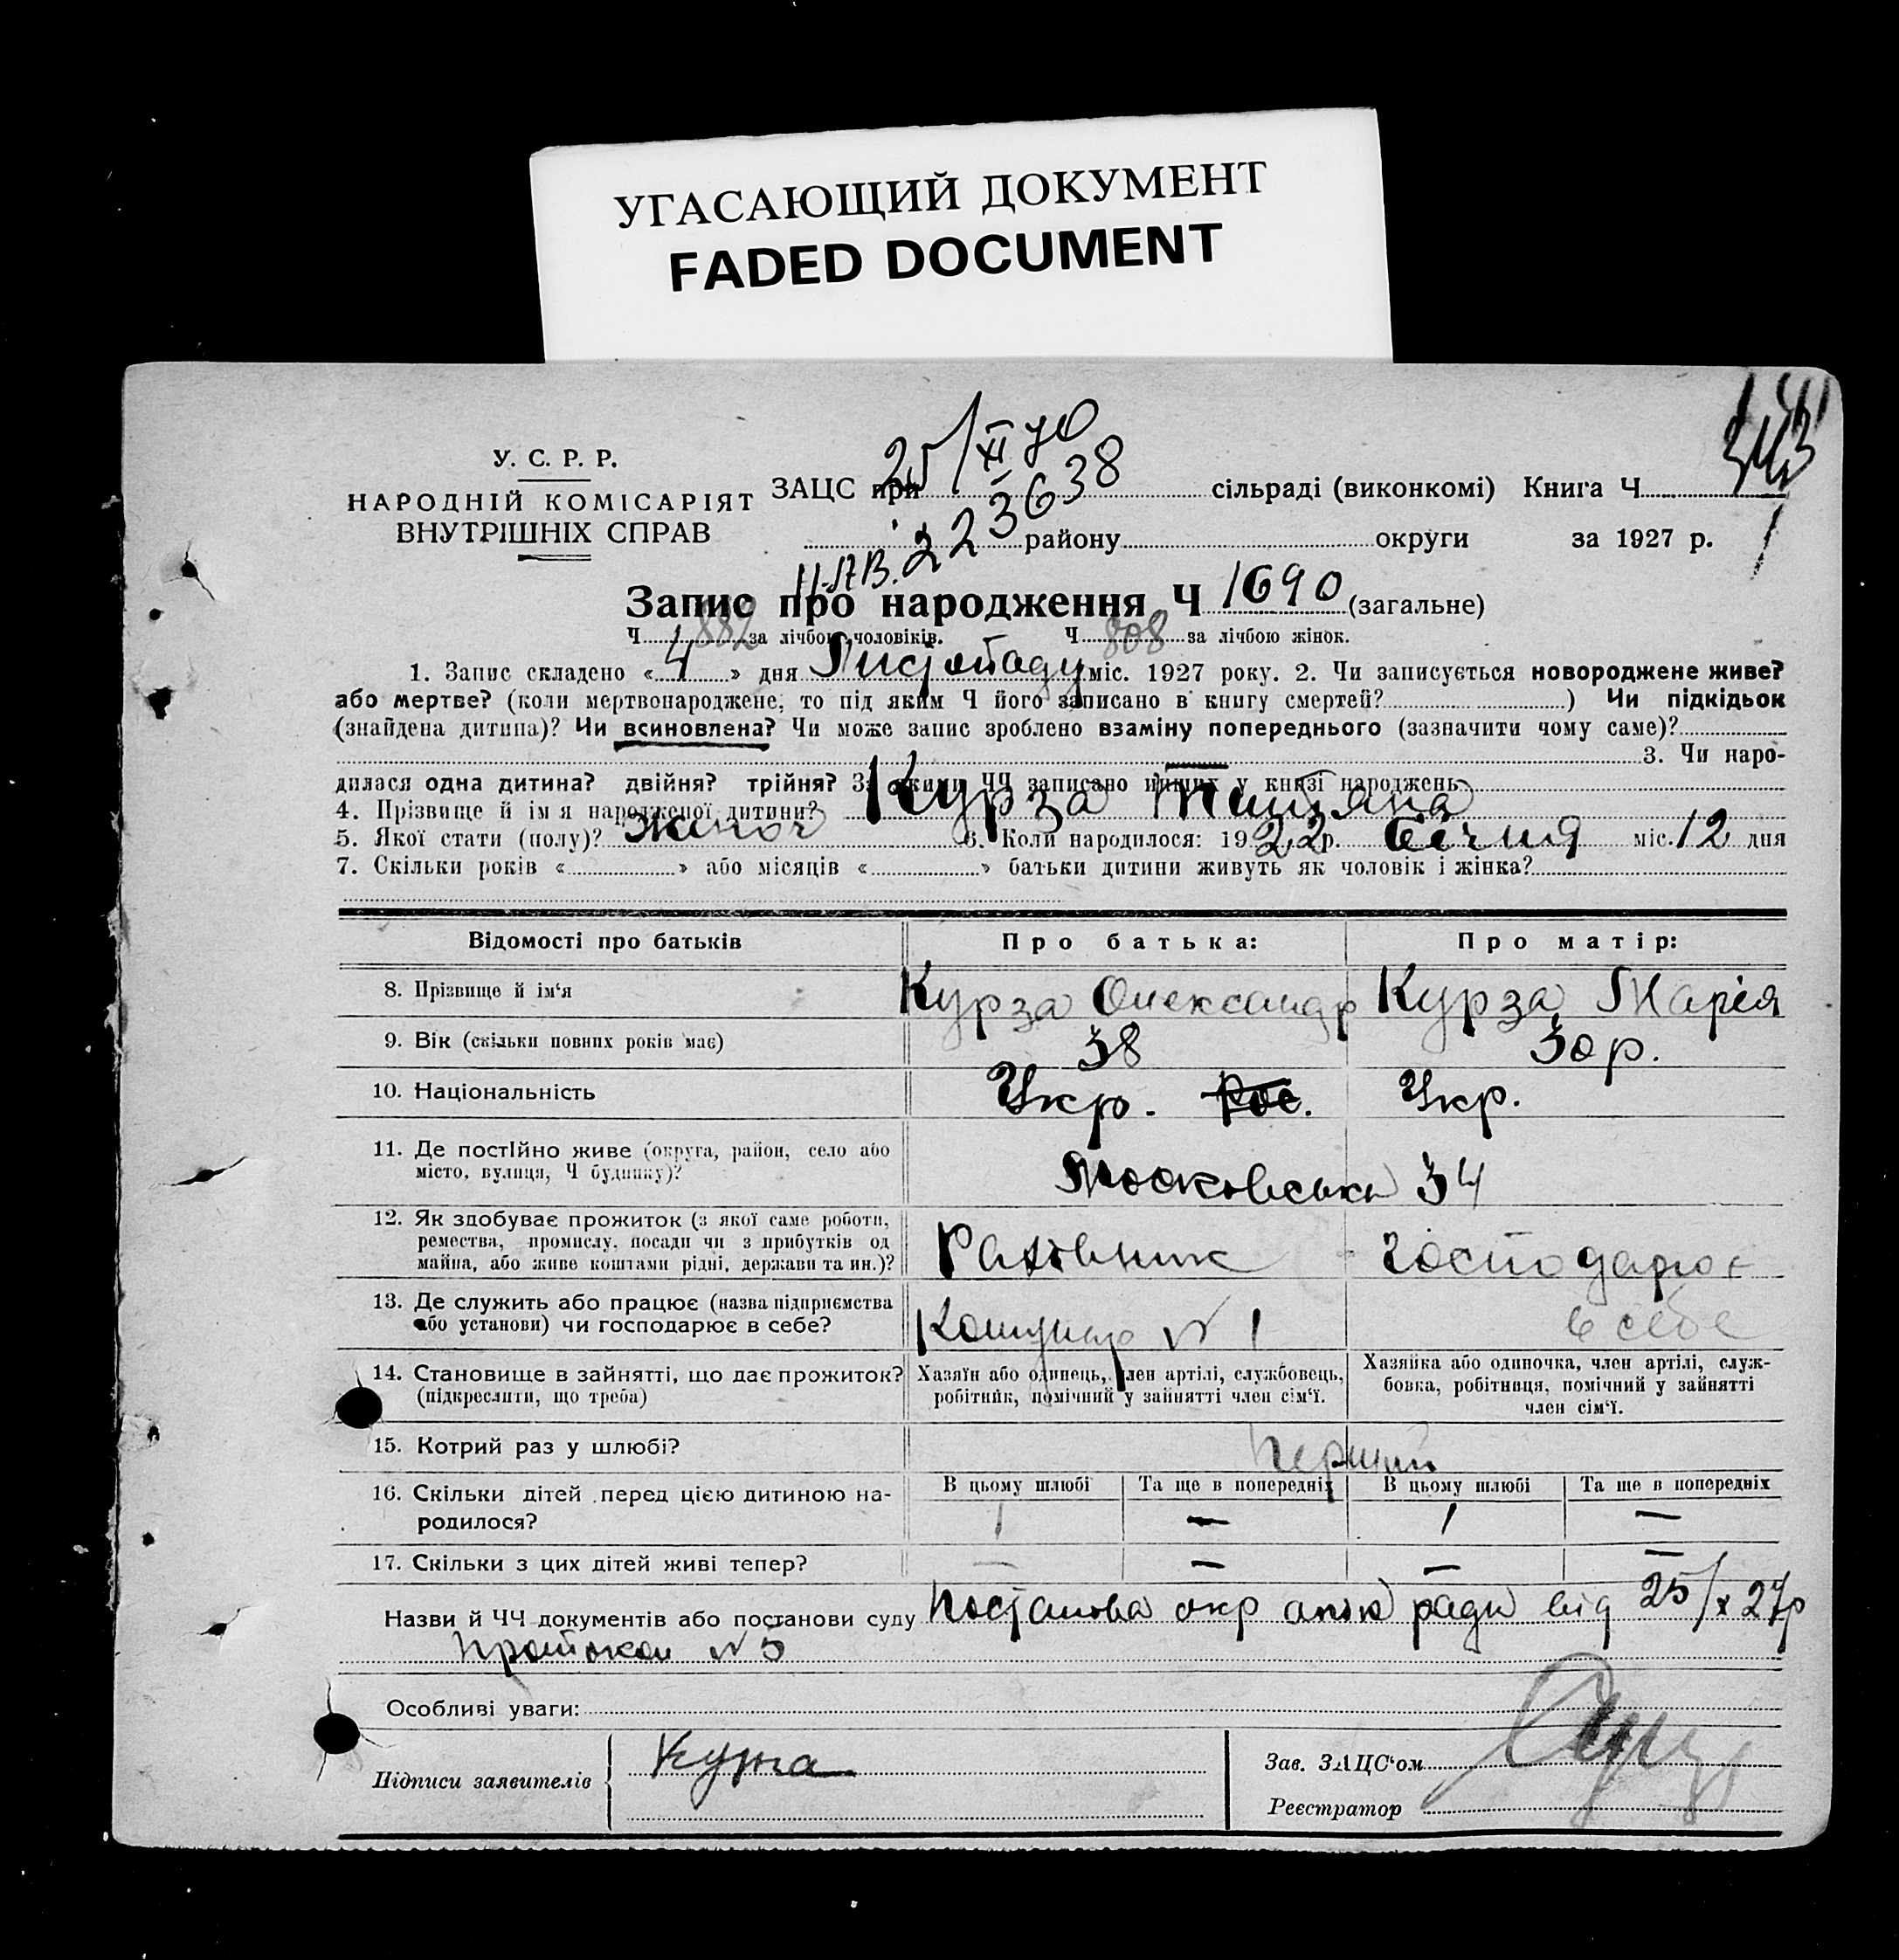 УГАСАЮЩИЙ ДОКУМЕНТ
FADED DOCUMENT
У. С. Р. Р.
НАРОДНІЙ КОМІСАРІЯТ
ВНУТРІШНІХ СПРАВ
25/XI 70
ЗАЦС при сільраді (виконкомі) Книга Ч
223638
району округи за 1927 р.
Запис про народження Ч 1690 (загальне)
Ч 882 за лічбою чоловіків. Ч 808 за лічбою жінок.
1. Запис складено «4» дня Листопаду міс. 1927 року. 2. Чи записується новороджене живе?
або мертве? (коли мертвонароджене, то під яким Ч його записано в книгу смертей? ) Чи підкідьок
(знайдена дитина)? Чи всиновлена? Чи може запис зроблено взаміну попереднього (зазначити чому саме)?
3. Чи наро-
дилася одна дитина? двійня? трійня? За якими ЧЧ записано инших у книзі народжень
4. Прізвище й ім я народженої дитини? Курза Татяна
5. Якої стати (полу)? жіноч 6. Коли народилося: 1922 р. Січня міс. 12 дня
7. Скільки років « » або місяців « » батьки дитини живуть як чоловік і жінка?
Відомості про батьків Про батька: Про матір:
8. Прізвище й ім‘я Курза Олександр Курза Марія
9. Вік (скільки повних років має) 38 30 р.
10. Національність Укр. Рос. Укр.
11. Де постійно живе (округа, район, село або
місто, вулиця, Ч будинку)? Московська 34
12. Як здобуває прожиток (з якої саме роботи,
ремества, промислу, посади чи з прибутків од
майна, або живе коштами рідні, держави та ин.)? Рахівник господарює
13. Де служить або працює (назва підприємства
або установи) чи господарює в себе? № 1 в себе
14. Становище в зайнятті, що дає прожиток?
(підкреслити, що треба)
Хазяїн або одинець, член артілі, службовець,
робітник, помічний у зайнятті член сім‘ї.
Хазяйка або одиночка, член артілі, служ-
бовка, робітниця, помічний у зайнятті
член сім‘ї.
15. Котрий раз у шлюбі? перший
16. Скільки дітей перед цією дитиною на-
родилося?
В цьому шлюбі Та ще в попередніх В цьому шлюбі Та ще в попередніх
1 — 1 —
17. Скільки з цих дітей живі тепер? — — — —
Назви й ЧЧ документів або постанови суду Постанова окр опік ради від 25/X 27р
протокол № 5
Особливі уваги:
Підписи заявителів Курза
Зав. ЗАЦС‘ом
Реєстратор